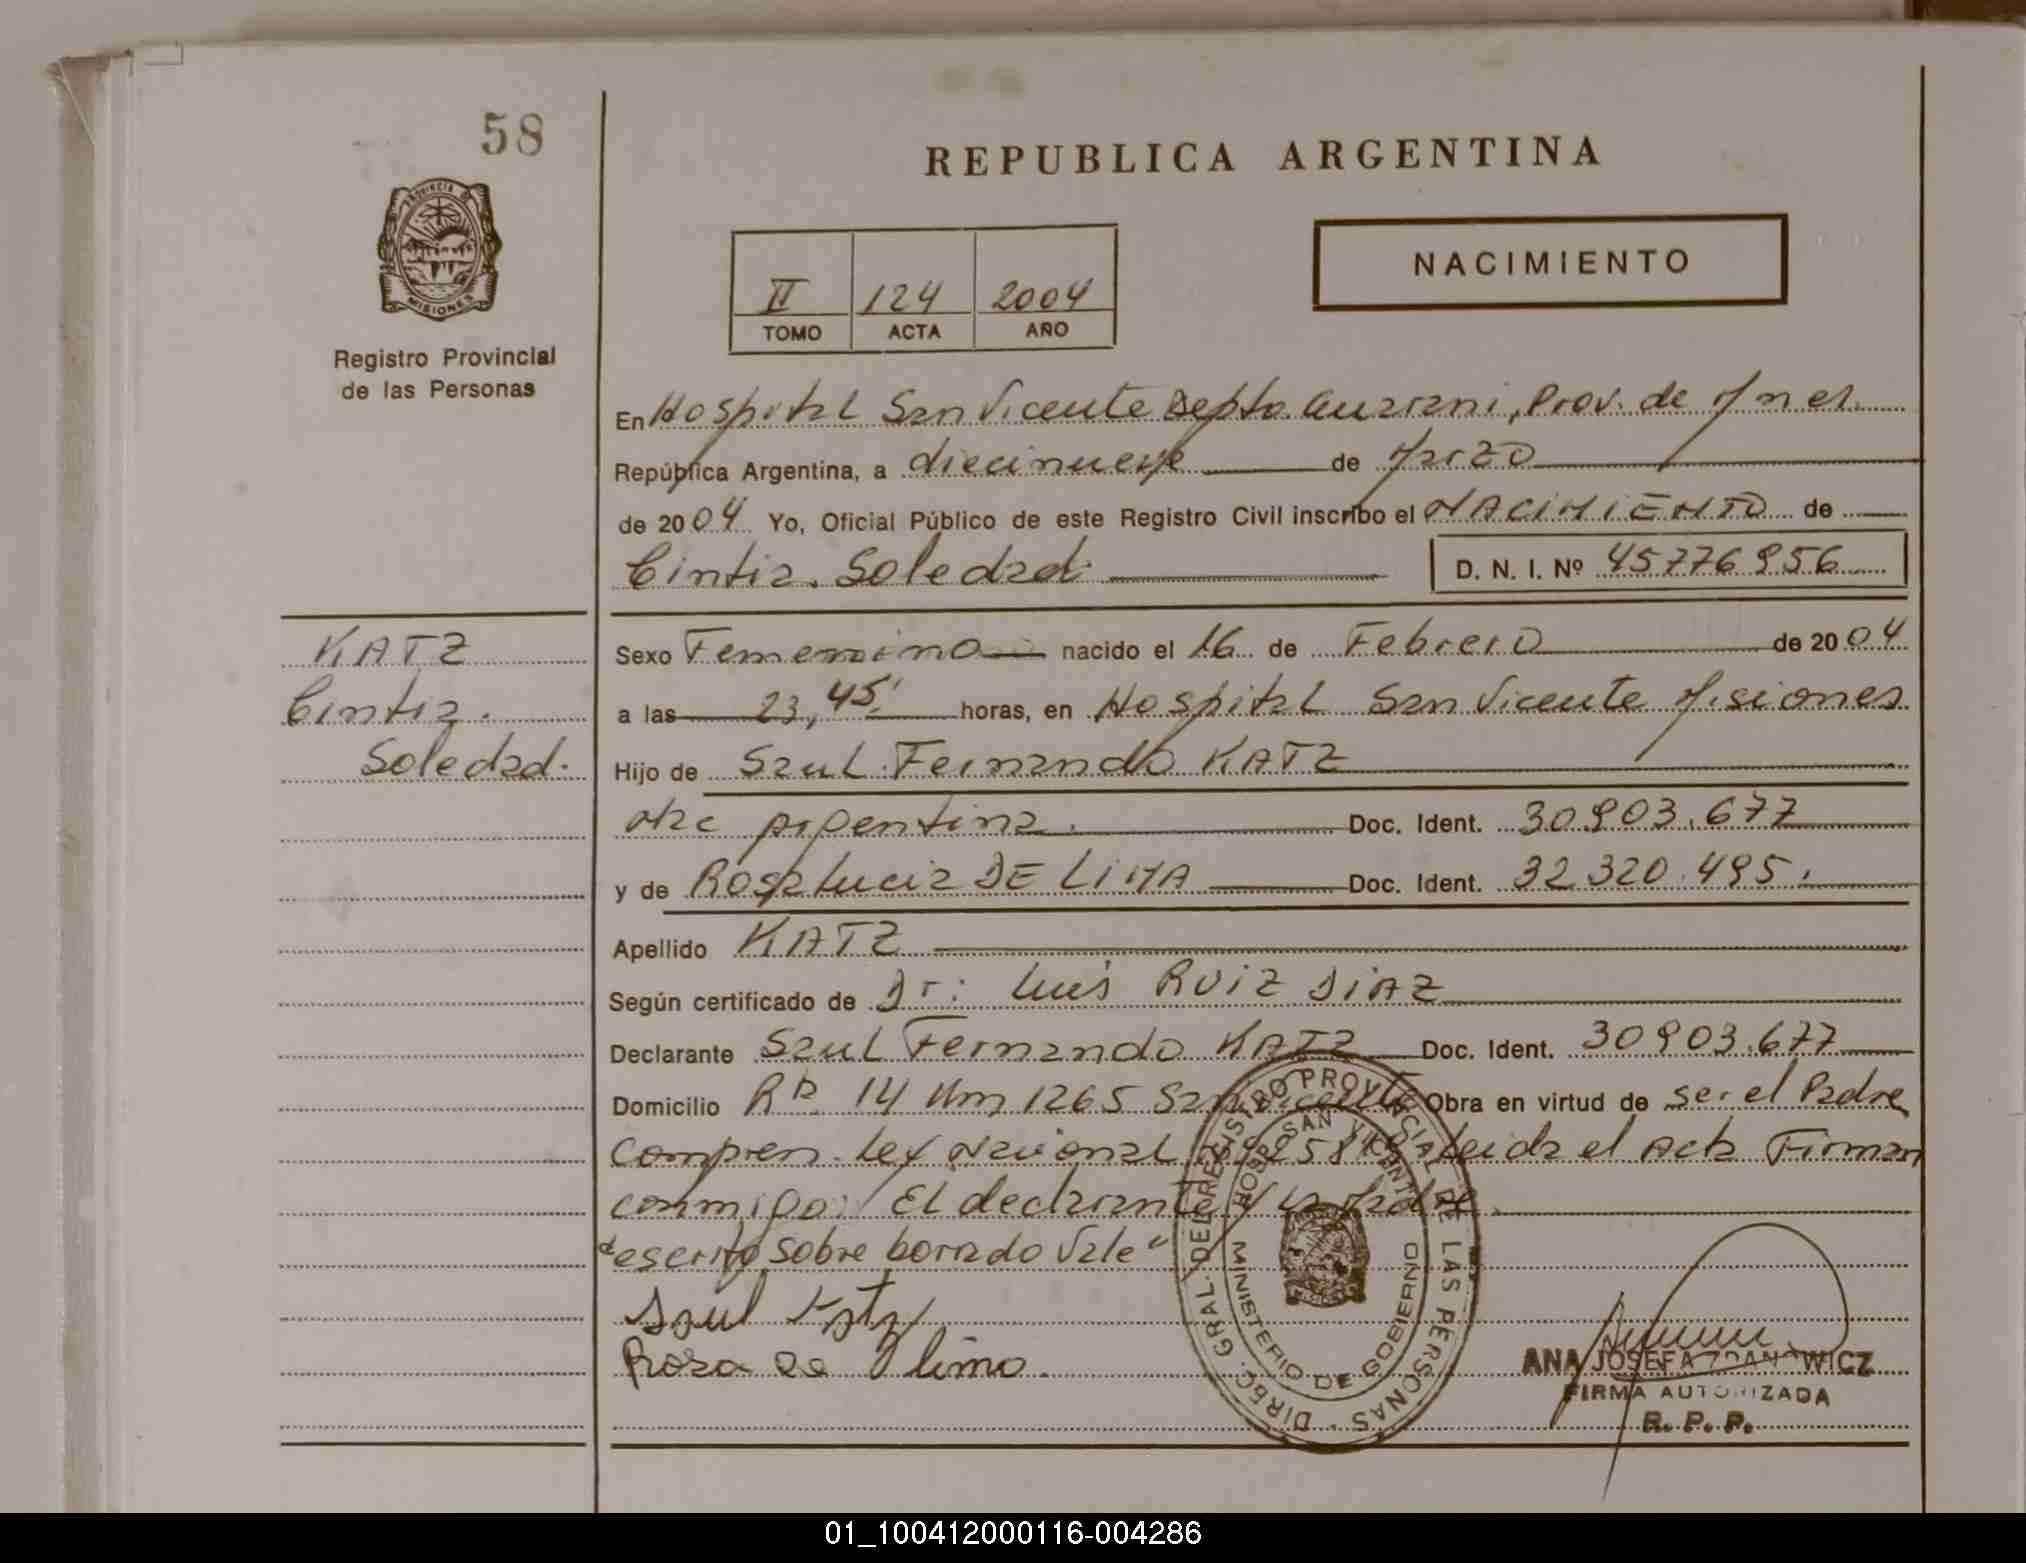 58
REPUBLICA ARGENTINA
PROVINCIA DE
MISIONES
Registro Provincial
de las Personas
NACIMIENTO
II 124 2004
TOMO ACTA AÑO
En Hospital San Vicente Depto. Guarani, Prov. de Mnes.
República Argentina, a diecinueve de Marzo
de 2004 Yo, Oficial Público de este Registro Civil inscribo el NACIMIENTO de
Cintia. Soledad. D. N. I. Nº 45776956
KATZ
Cintia.
Soledad.
Sexo Femenino nacido el 16 de Febrero de 2004
a las 23,45' horas, en Hospital San Vicente Misiones
Hijo de Saul Fernando KATZ
Nac Argentina. Doc. Ident. 30903.677
y de Rosa Lucia DE LIMA Doc. Ident. 32.320.495.
Apellido KATZ
Según certificado de Dr: Luis RUIZ DIAZ
Declarante Saul Fernando KATZ Doc. Ident. 30903.677
Domicilio 14 Km 1265 San Vicente Obra en virtud de ser el Padre
Compren. Ley Nacional Leida el Acta Firman
conmigo: El declarante y la Madre.
"escrito sobre borrado Vale"
Saul Katz
Rosa de lima
DIREC. GRAL. DEL REGISTRO PROVINCIAL DE LAS PERSONAS
HOSP. SAN VICENTE
MINISTERIO DE GOBIERNO
ANA JOSEFA ZDANOWICZ
FIRMA AUTORIZADA
R. P. P.
01_100412000116-004286